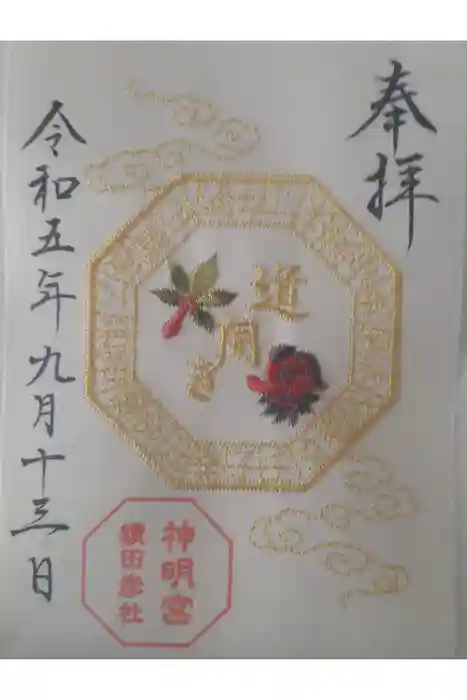 奉拝
道開き
令和五年九月十三日
神明宮
猿田彦社